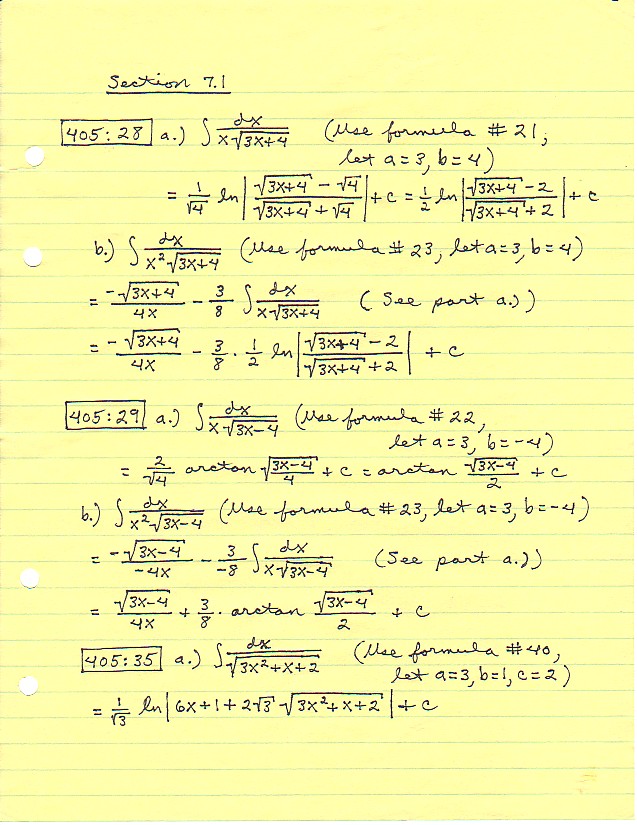 Section 7.1
405:28 a.) ∫ dx/(x√(3x+4)) (Use formula # 21,
let a=3, b=4)
= 1/√4 ln| (√(3x+4) - √4)/(√(3x+4) + √4) | + c = 1/2 ln| (√(3x+4) - 2)/(√(3x+4) + 2) | + c
b.) ∫ dx/(x²√(3x+4)) (Use formula # 23, let a=3, b=4)
= -√(3x+4)/(4x) - 3/8 ∫ dx/(x√(3x+4)) (See part a.))
= -√(3x+4)/(4x) - 3/8 · 1/2 ln| (√(3x+4) - 2)/(√(3x+4) + 2) | + c
405:29 a.) ∫ dx/(x√(3x-4)) (Use formula # 22,
let a=3, b=-4)
= 2/√4 arctan √((3x-4)/4) + c = arctan √(3x-4)/2 + c
b.) ∫ dx/(x²√(3x-4)) (Use formula # 23, let a=3, b=-4)
= -√(3x-4)/(-4x) - 3/(-8) ∫ dx/(x√(3x-4)) (See part a.))
= √(3x-4)/(4x) + 3/8 · arctan √(3x-4)/2 + c
405:35 a.) ∫ dx/√(3x²+x+2) (Use formula # 40,
let a=3, b=1, c=2)
= 1/√3 ln| 6x+1+2√3 √(3x²+x+2) | + c